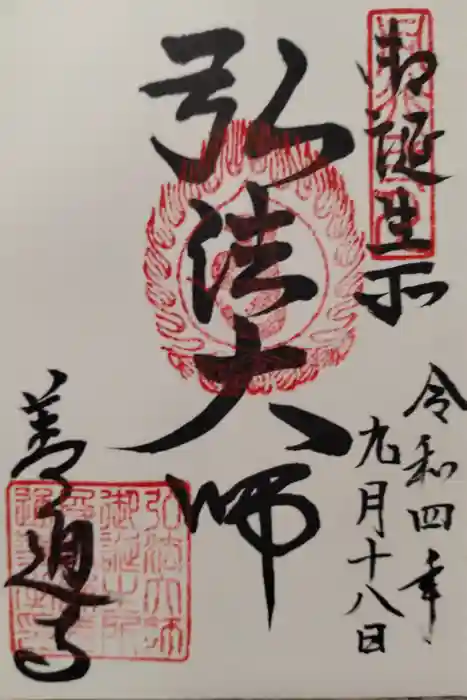 御誕生所
令和四年
九月十八日
弘法大師
善通寺
弘法大師
御誕生所